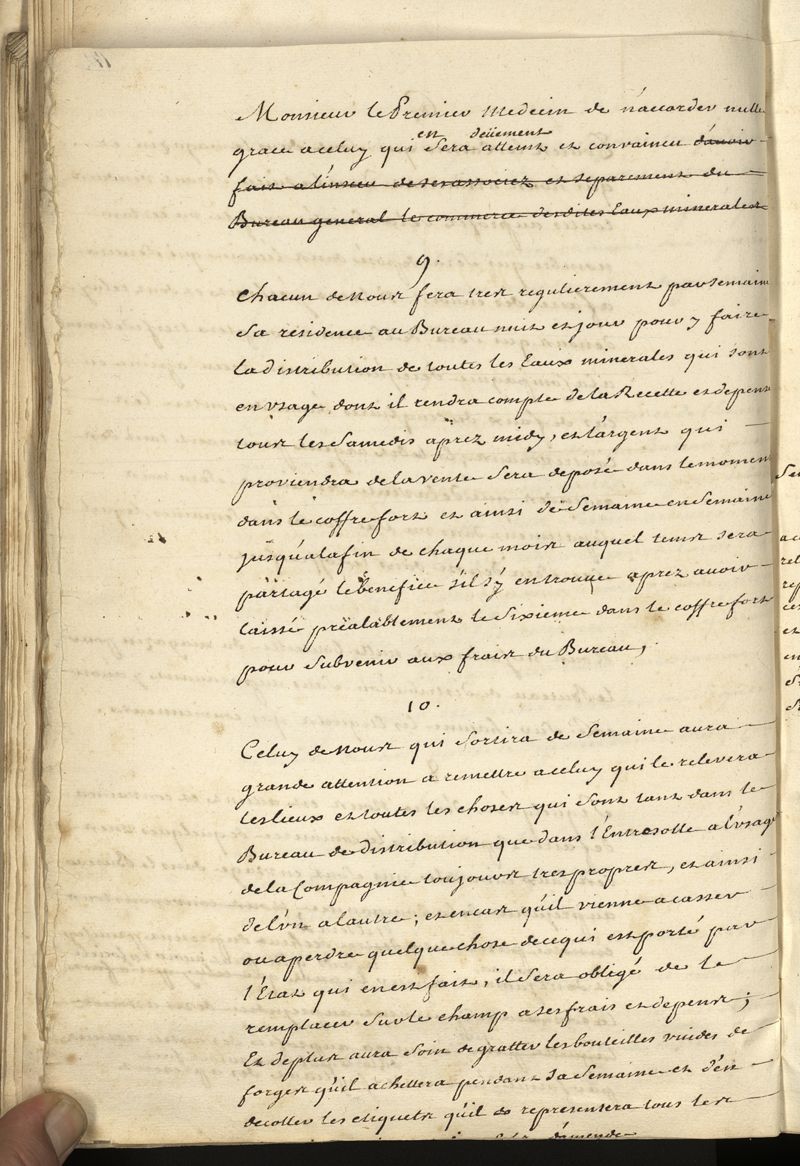 Monsieur le Premier Medecin de n'accorder nulle
en deüement
grace a celuy qui sera atteint et convaincu d'avoir
fait a l'insceu de ses associez et separement du
Bureau general le commerce desdites Eaux minerales
9.
Chacun de Nous fera tres regulierement par semaine
sa residence au Bureau nuit et jour pour y faire
la distribution de toutes les Eaux minerales qui sont
en usage dont il rendra compte de la Recette et depense
tous les Samedis aprez midy, et l'argent qui
proviendra de la vente sera deposé dans le moment
dans le coffre fort et ainsi de Semaine en Semaine
jusqu'a la fin de chaque mois auquel tems sera
partagé le benefice s'il s'y en trouve aprez avoir
laissé préalablement le Sixieme dans le coffre fort
pour subvenir aux frais du Bureau,
10.
Celuy de Nous qui sortira de Semaine aura
grande attention a remettre a celuy qui le relevera
les lieux et toutes les choses qui sont tant dans le
Bureau de distribution que dans l'Entresolle a l'usage
de la Compagnie toujours tres propres, et ainsi
de l'un a l'autre; et en cas qu'il vienne a casser
ou a perdre quelque chose de ce qui est porté par
l'Etat qui en est fait, il sera obligé de le
remplacer sur le champ a ses frais et depens;
Et de plus aura soin de gratter les bouteilles vuides de
forges qu'il achettera pendant sa Semaine et d'en
decoller les etiquets qu'il representera tous les
d'amende